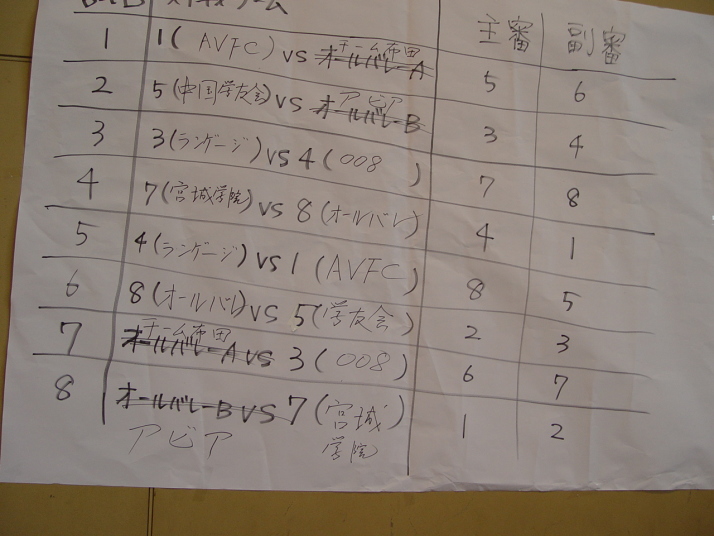 主審 副審
1 1(AVFC) vs チーム布田 オールバレーA 5 6
2 5(中国学友会) vs アビア オールバレーB 3 4
3 3(ランゲージ) vs 4(008) 7 8
4 7(宮城学院) vs 8(オールバレ) 4 1
5 4(ランゲージ) vs 1(AVFC) 8 5
6 8(オールバレ) vs 5(学友会) 2 3
7 チーム布田 オールバレーA vs 3(008) 6 7
8 オールバレーB vs 7(宮城学院) 1 2
アビア